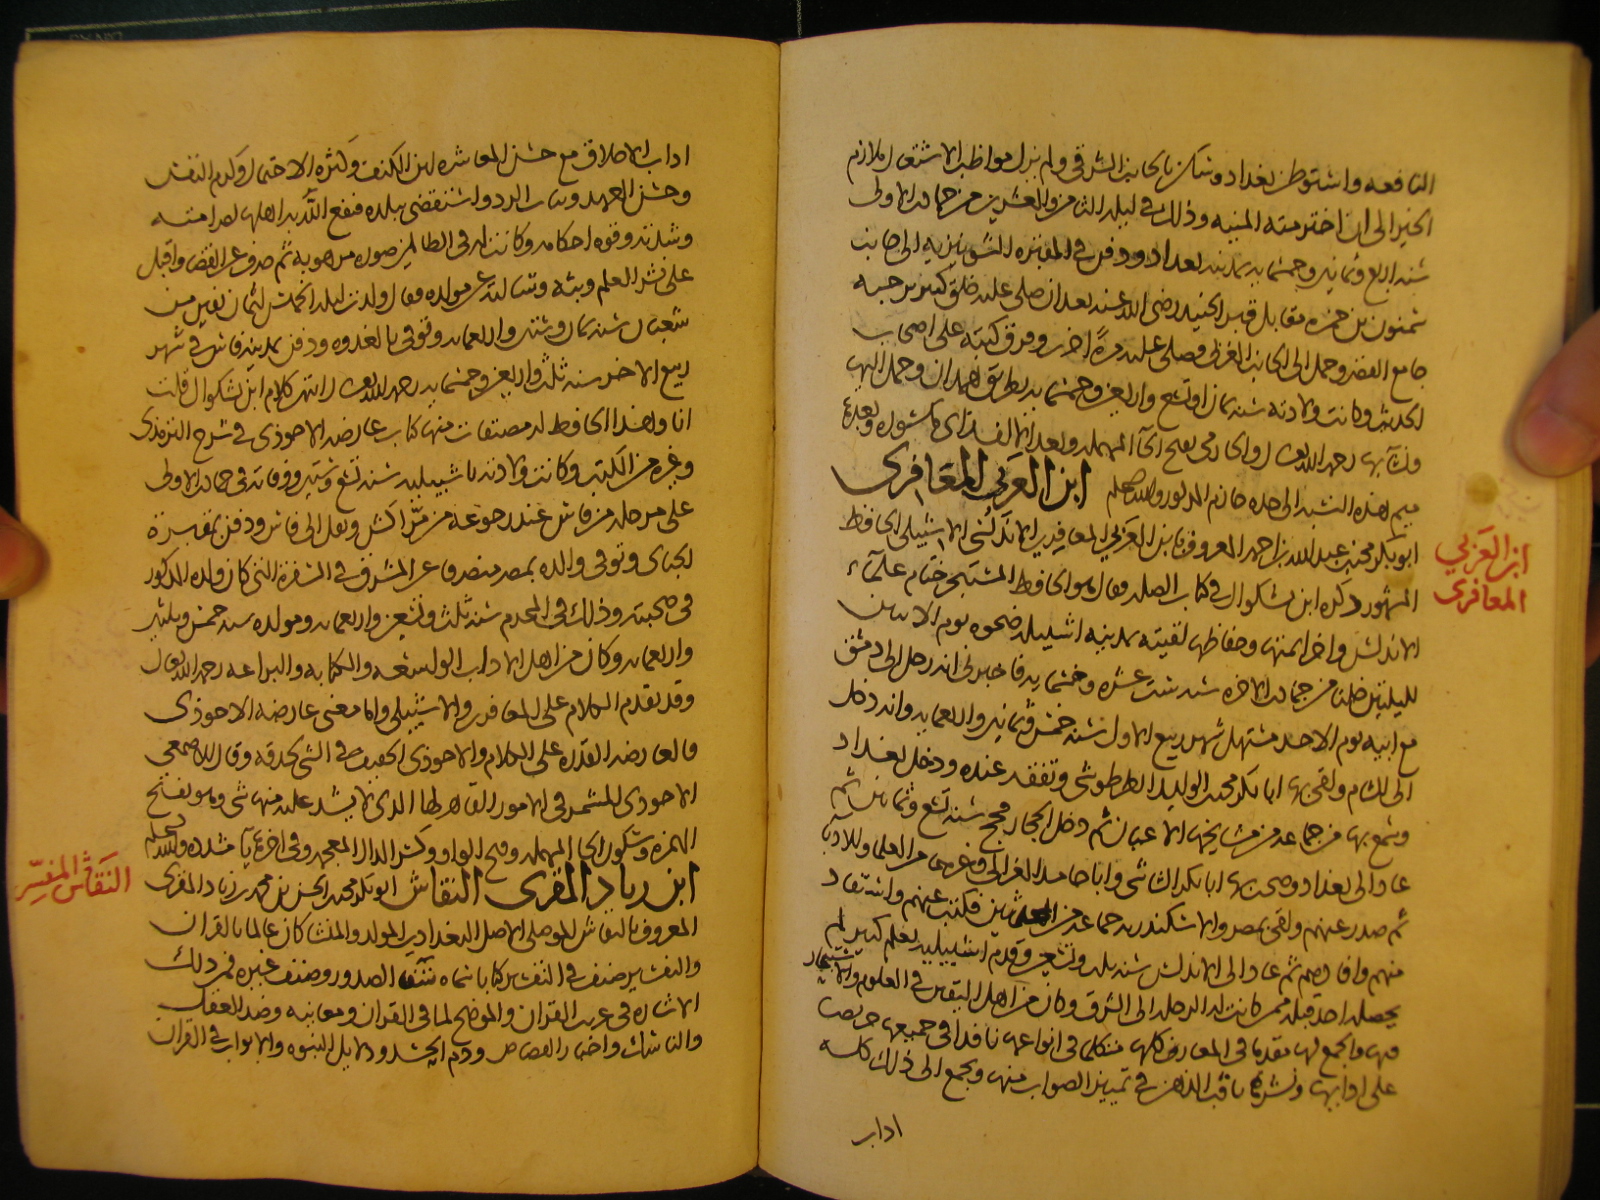 النافعة واستوطن بغداد وسكن بالجانب الشرقي ولم يزل مواظب الاشتغال ملازم
الخير الى ان اخترمته المنية وذلك في ليلة الثامن والعشرين من جمادى الاولى
سنة اربع وثمانين وخمسماية بمدينة بغداد ودفن في المقبرة الشونيزية الى جانب
سمنون بن حمزة مقابل قبر الجنيد رضي الله عنه بعد ان صلى عليه خلق كثير برحبة
جامع القصر وحمل الى الجانب الغربي فصلي عليه مرة اخرى وفرق كتبه على اصحاب
الحديث وكانت ولادته سنة ثمان او تسع واربعين وخمسماية بطريق همدان وحمل اليها
ونشأ بها رحمه الله تعالى والحازمي بفتح الحآ المهملة وبعد الالف زاي مكسورة وبعدها
ميم هذه النسبة الى جده حازم المذكور والله اعلم ابن العربي المعافري
ابو بكر محمد بن عبد الله بن احمد المعروف بابن العربي المعافري الاندلسي الاشبيلي الحافظ
ابن العربي
المعافري
المشهور ذكره ابن بشكوال في كتاب الصلة فقال هو الحافظ المستبحر ختام علمآء
الاندلس واخر ائمتها وحفاظها لقيته بمدينة اشبيلية ضحوة يوم الاثنين
لليلتين خلتا من جمادى الاخرة سنة ست عشرة وخمسماية فاخبرني انه رحل الى دمشق
مع ابيه يوم الاحد مستهل شهر ربيع الاول سنة خمس وثمانين واربعماية وانه دخل
الى الشام ولقي بها ابا بكر محمد بن الوليد الطرطوشي وتفقه عنده ودخل بغداد
وسمع بها من جماعة من مشايخها الاعيان ثم دخل الحجاز فحج سنة تسع وثمانين ثم
عاد الى بغداد وصحب بها ابا بكر الشاشي وابا حامد الغزالي وغيرهما من العلما والادبا
ثم صدر عنهم ولقي بمصر والاسكندرية جماعة من المحدثين فكتب عنهم واستفاد
منهم وافادهم ثم عاد الى الاندلس سنة ثلث وتسعين وقدم اشبيلية بعلم كثير لم
يحصله احد قبله ممن كانت له الرحلة الى الشرق وكان من اهل التفنن في العلوم والاستبحار
فيها والجمع لها مقدما في المعارف كلها متكلما في انواعها نافذا في جميعها حريصا
على ادابها ونشرها ثاقب الذهن في تمييز الصواب منها ويجمع الى ذلك كله
اداب
اداب الاخلاق مع حسن المعاشرة لين الكنف وكثرة الاحتمال وكرم النفس
وحسن العهد وثبات الود واستقضي ببلده فنفع الله به اهلها لصرامته
وشدته وقوة احكامه وكانت له في الظالمين صورة مرهوبة ثم صرف عن القضا واقبل
على نشر العلم وبثه وسالته عن مولده فقال ولدت ليلة الخميس لثمان بقين من
شعبان سنة ثمان وستين واربعماية وتوفي بالعدوة ودفن بمدينة فاس في شهر
ربيع الاخر سنة ثلث واربعين وخمسماية رحمه الله تعالى انتهى كلام ابن بشكوال قلت
انا ولهذا الحافظ له مصنفات منها كتاب عارضة الاحوذي في شرح الترمذي
وغيره من الكتب وكانت ولادته باشبيلية سنة تسع وستين ووفاته في جمادى الاولى
على مرحلة من فاس عند رجوعه من مراكش ونقل الى فاس ودفن بمقبرة
الجياني وتوفي والده بمصر منصرفا عن المشرق في السفرة التي كان ولده المذكور
في صحبته وذلك في المحرم سنة ثلث وتسعين واربعماية ومولده سنة خمس وثلثين
واربعماية وكان من اهل الاداب الواسعة والكتابة والبراعة رحمه الله تعالى
وقد تقدم الكلام على المعافري والاشبيلي واما معنى عارضة الاحوذي
فالعارضة القدرة على الكلام والاحوذي الخفيف في الشي لحذقه وقال الاصمعي
الاحوذي المشمر في الامور القاهر لها الذي لا يشذ عليه منها شي وهو بفتح
الهمزة وسكون الحا المهملة وفتح الواو وكسر الذال المعجمة وفي اخره يآ مشددة والله اعلم
ابن زياد المقري النقاش ابو بكر محمد بن الحسن بن محمد بن زياد المقري
النقاش المفسر
المعروف بالنقاش الموصلي الاصل البغدادي المولد والمنشا كان عالما بالقران
والتفسير صنف في التفسير كتابا سماه شفا الصدور وصنف غيره فمن ذلك
الاشارة في غريب القران والموضح لما في القران ومعانيه وضد العقل
والمناسك واخبار القصاص وذم الحسد ودلايل النبوة والابواب في القران